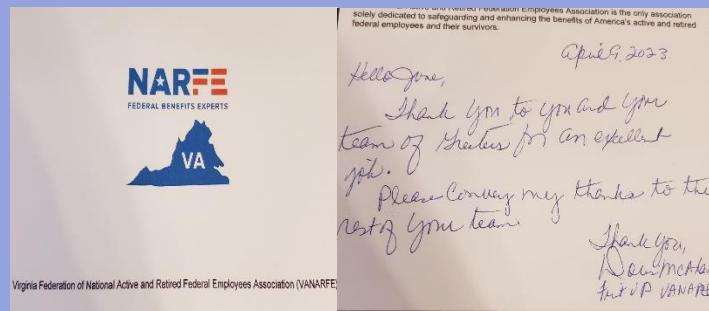 NARFE
FEDERAL BENEFITS EXPERTS
VA
Virginia Federation of National Active and Retired Federal Employees Association (VANARFE)
and Retired Federation Employees Association is the only association
solely dedicated to safeguarding and enhancing the benefits of America's active and retired
federal employees and their survivors.
April 9, 2023
Hello June,
Thank You to you and your
team of Greeters for an excellent
job.
Please Convey my thanks to the
rest of your team
Thank you,
VP VANARFE